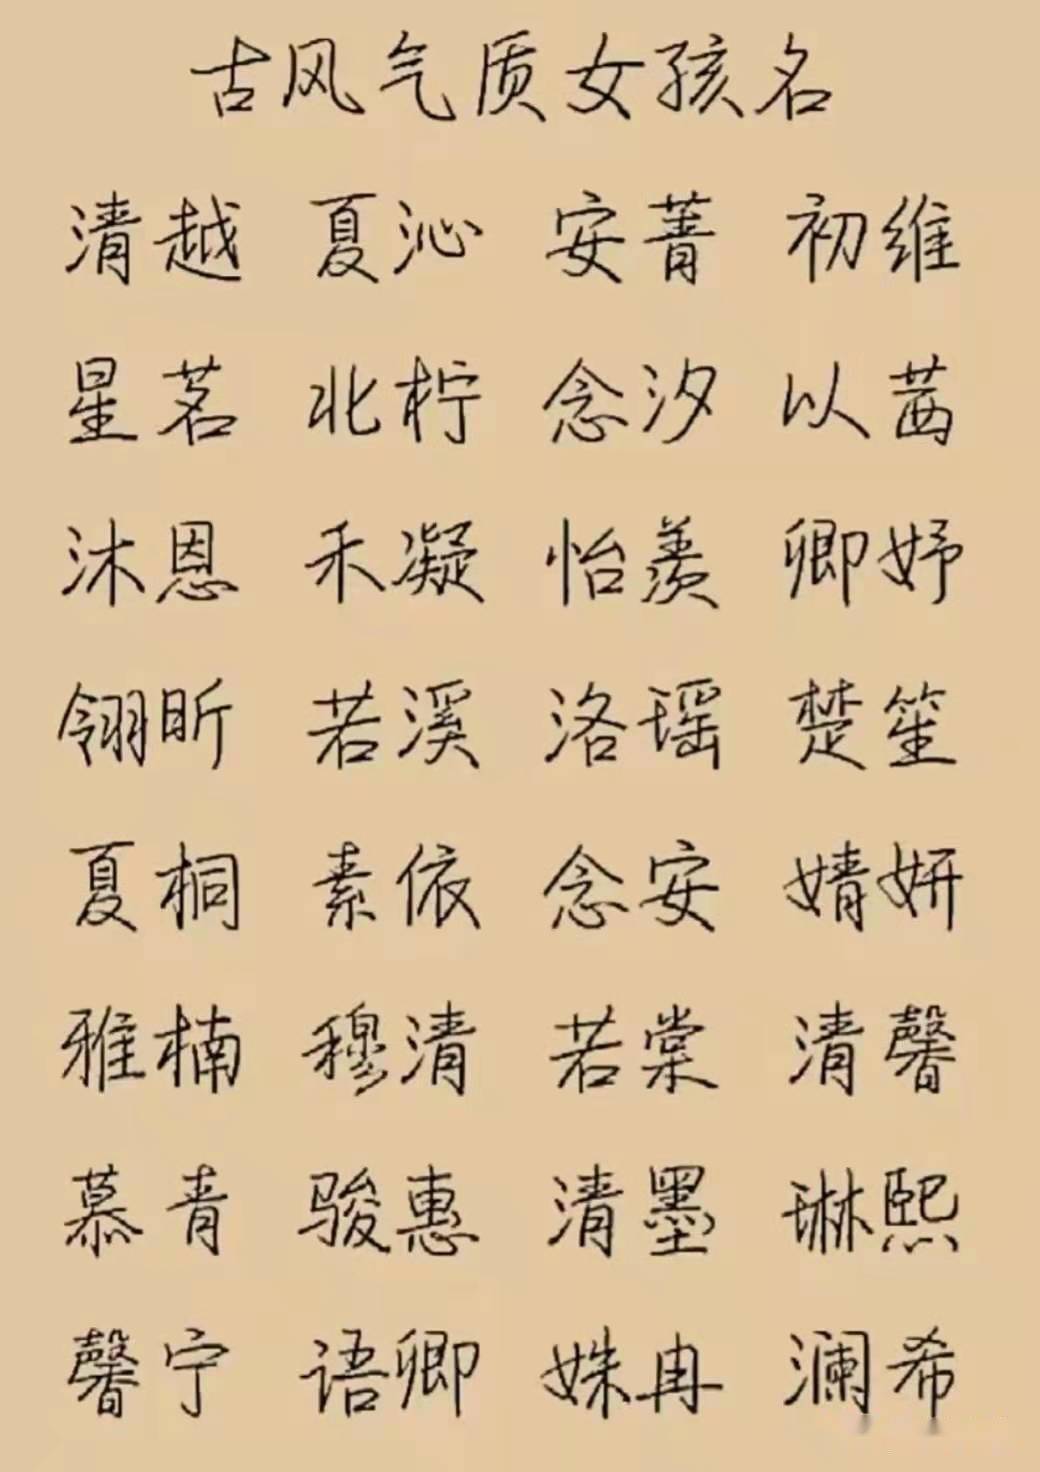 古风气质女孩名
清越 夏沁 安菁 初维
星茗 北柠 念汐 以茜
沐恩 禾凝 怡羡 卿妤
翎昕 若溪 洛瑶 楚笙
夏桐 素依 念安 婧妍
雅楠 穆清 若棠 清馨
慕青 骏惠 清墨 琳熙
馨宁 语卿 姝冉 澜希